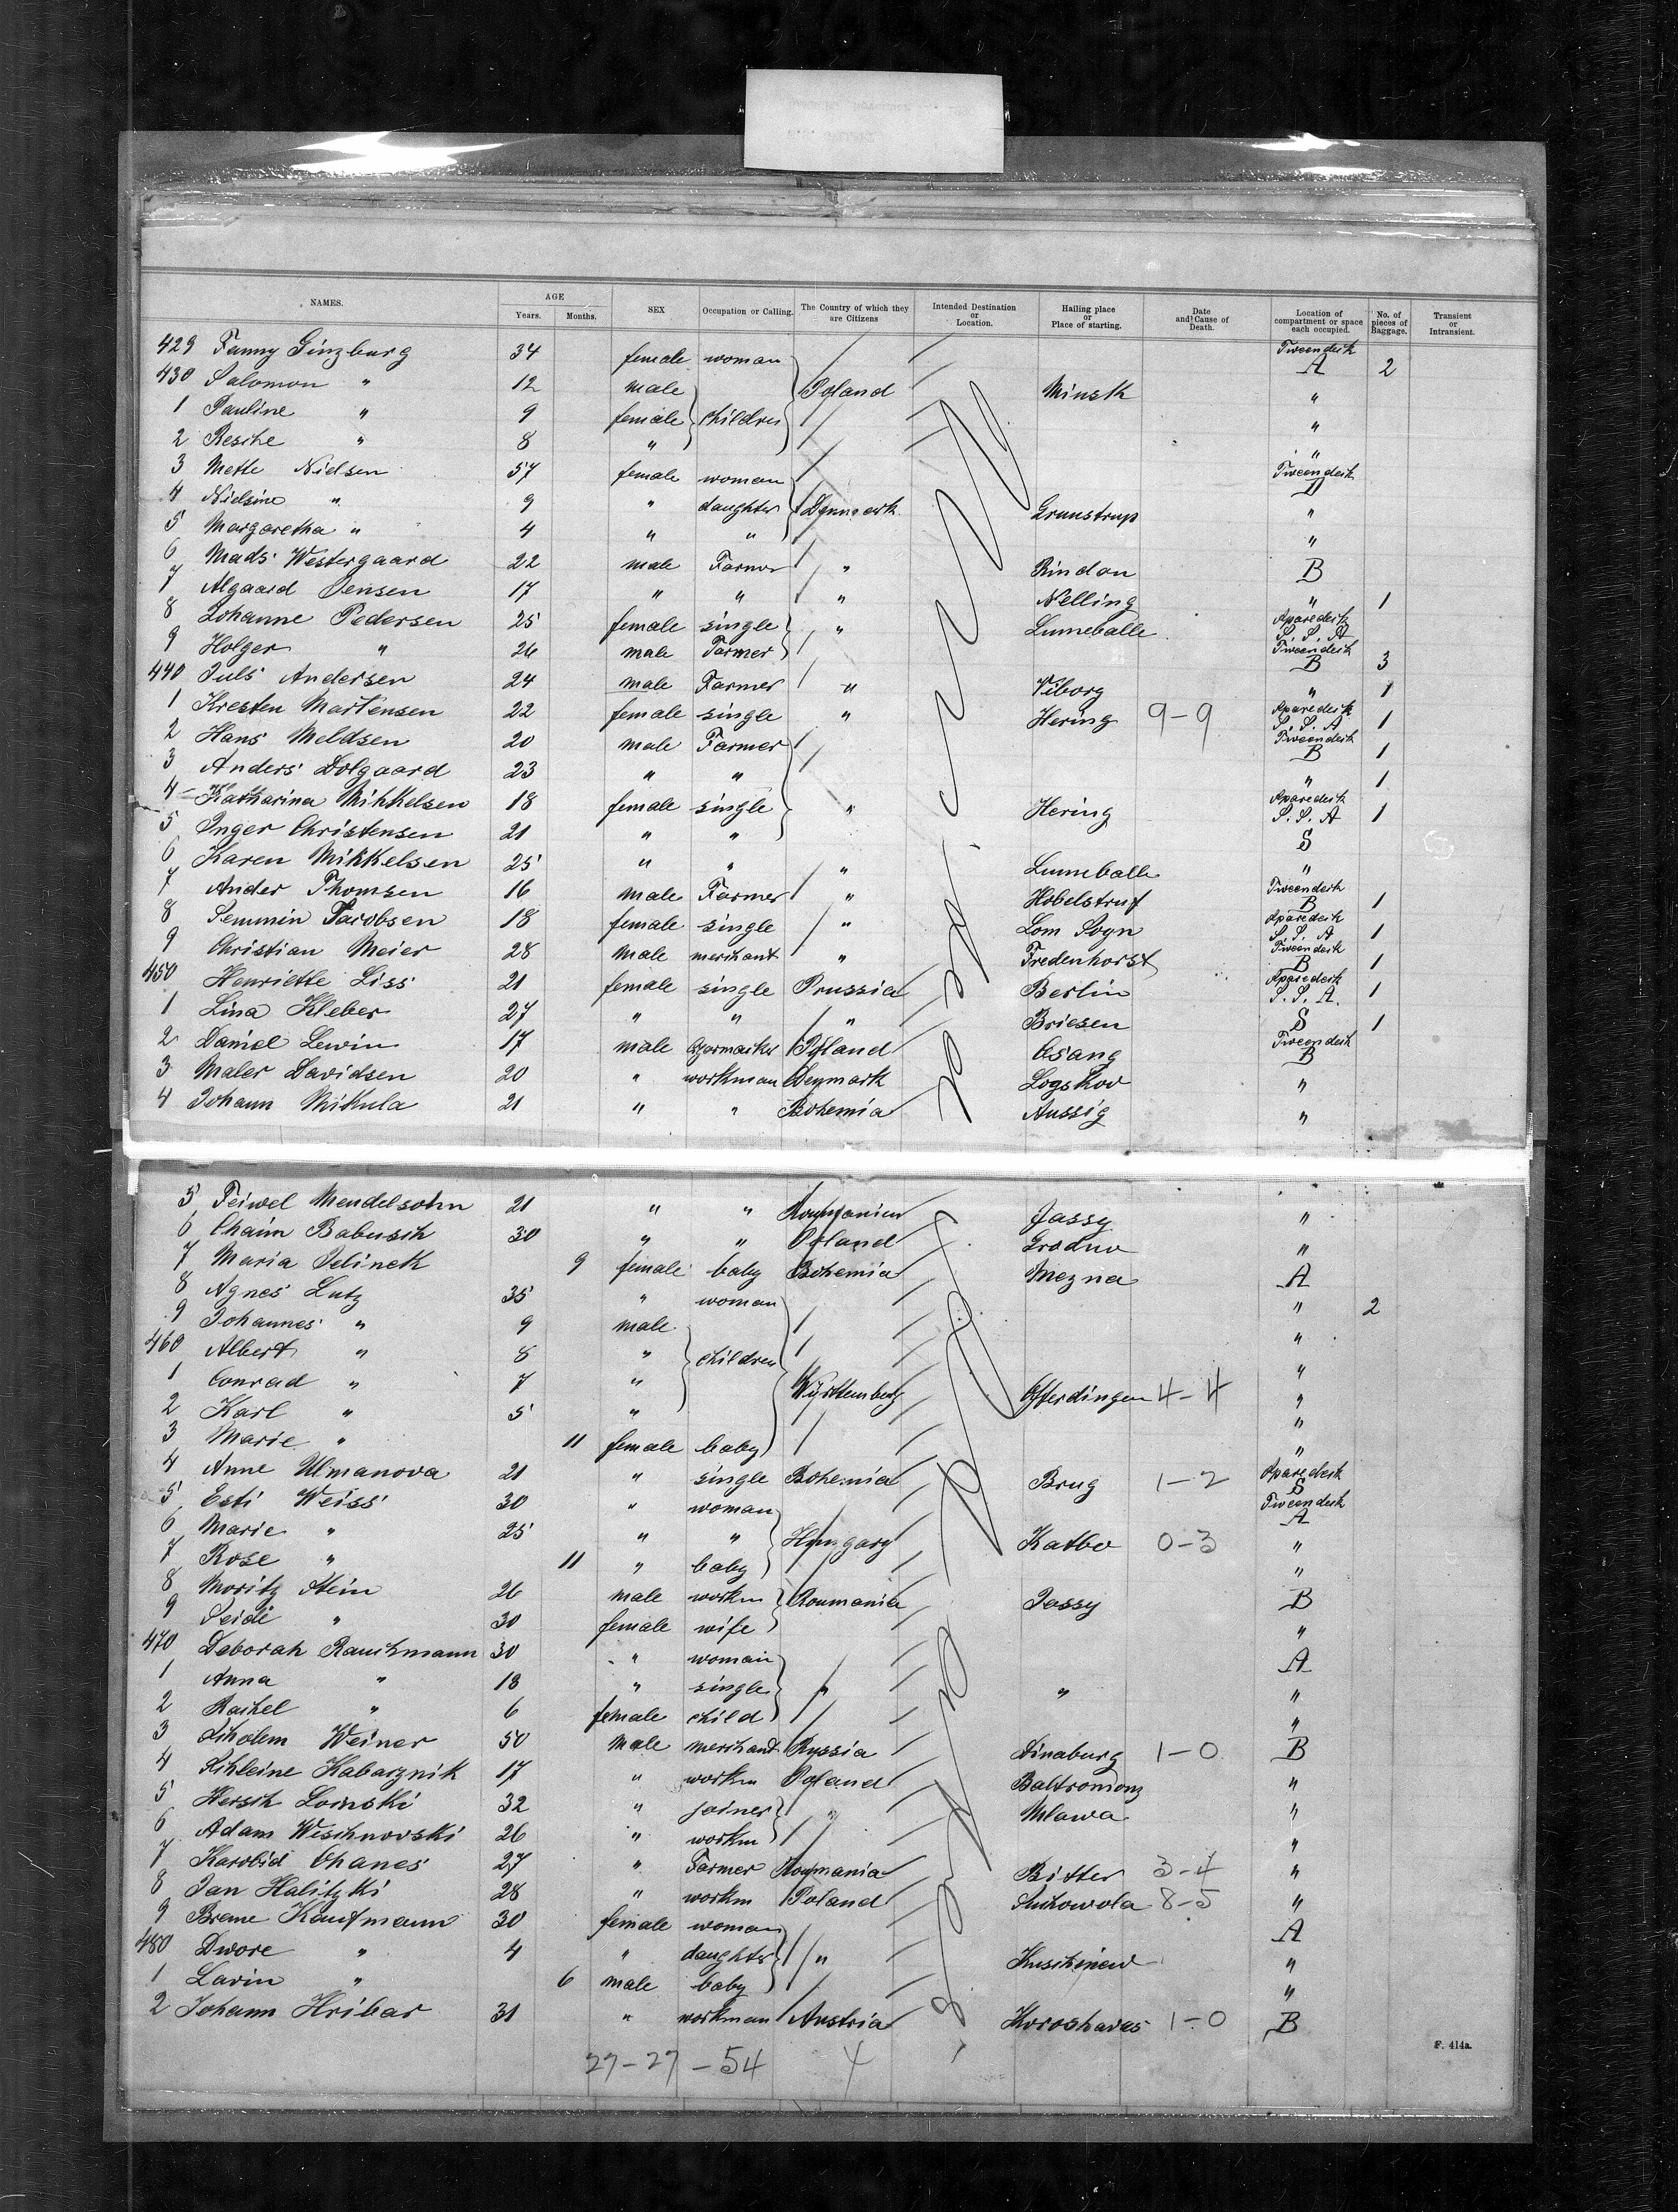 NAMES. AGE Years. Months. SEX Occupation or Calling. The Country of which they are Citizens Intended Destination or Location. Hailing place or Place of starting. Date and Cause of Death. Location of compartment or space each occupied. No. of pieces of Baggage. Transient or Intransient.
429 Fanny Ginzburg 34 female woman Tweendeck A 2
430 Salomon " 12 male Poland Minsk "
1 Pauline " 9 female children "
2 Resche " 8 " "
3 Mette Nielsen 57 female woman Tweendeck
4 Nielsine " 9 " daughter Denmark Grunstrup "
5 Margaretha " 4 " " "
6 Mads Westergaard 22 male Farmer " Rindon B
7 Algaard Jensen 17 " " " Nelling " 1
8 Johanne Pedersen 25 female single " Lunneballe Aparedeck S.S.A
9 Holger " 26 male Farmer Tweendeck B 3
440 Juls Andersen 24 male Farmer " Viborg " 1
1 Kresten Martensen 22 female single " Hering 9-9 Aparedeck S.S.A 1
2 Hans Meldsen 20 male Farmer Tweendeck B 1
3 Anders Dolgaard 23 " " " 1
4 Katharina Mikkelsen 18 female single " Hering Aparedeck S.S.A 1
5 Inger Christensen 21 " " S
6 Karen Mikkelsen 25 " " " Lunneballe "
7 Ander Thomsen 16 male Farmer " Hobelstruf Tweendeck B 1
8 Semmin Jacobsen 18 female single " Lom Sogn Aparedeck S.S. A 1
9 Christian Meier 28 male merchant " Fredenhorst Tweendeck B 1
450 Henriette Liss 21 female single Prussia Berlin Aparedeck S.S.A. 1
1 Lina Kleber 27 " " " Briesen S 1
2 Daniel Lewin 17 male Poland Osang Tweendeck B
3 Maler Davidsen 20 " workman Denmark Logskov "
4 Johann Mikula 21 " " Bohemia Aussig "
5 Feiwel Mendelsohn 21 " " Roumanien Jassy "
6 Chaim Babusch 30 " " Poland Grodno "
7 Maria Jelinek 9 female baby Bohemia Mezna A
8 Agnes Lutz 35 " woman " 2
9 Johannes " 9 male "
460 Albert " 8 " children "
1 Conrad " 7 " Württemberg Offerdingen 4-4 "
2 Karl " 5 " "
3 Marie " 11 female baby "
4 Anne Ulmanova 21 " single Bohemia Brug 1-2 Aparedeck S
5 Esti Weiss 30 " woman Tweendeck A
6 Marie " 25 " " Hungary Katbo 0-3 "
7 Rose " 11 " baby "
8 Moritz Stein 26 male workm Roumania Jassy B
9 Seide " 30 female wife "
470 Deborah Rauchmann 30 " woman A
1 Anna " 18 " single " " "
2 Rachel " 6 female child "
3 Scholem Weiner 50 male merchant Russia Dinaburg 1-0 B
4 Schleine Kabarznik 17 " workm Poland Baltromonz "
5 Hersch Loinski 32 " joiner " Mlawa "
6 Adam Wischnovski 26 " workm "
7 Karolid Ohanes 27 " Farmer Roumania Bitter 3-4 "
8 Jan Halitzki 28 " workm Poland Suchowola 8-5 "
9 Breme Kaufmann 30 female woman A
480 Dwore " 4 " daughter " Kuschinew "
1 Lavin " 6 male baby "
2 Johann Hribar 31 " workman Austria Koroshaves 1-0 B
27-27-54 4
F. 414a.